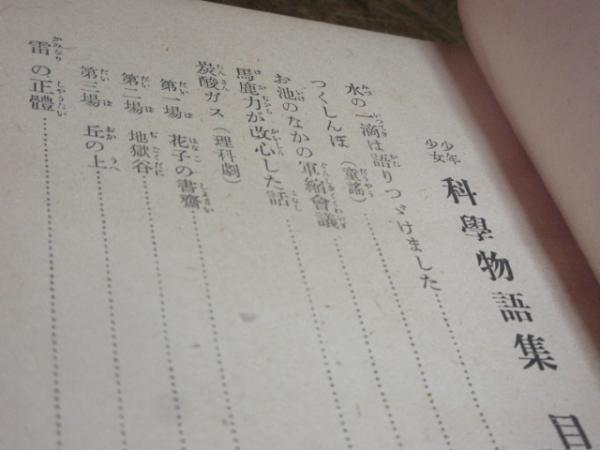 少年少女 科學物語集 目
水の一滴は語りつゞけました
つくしんぼ（童謠）
お池のなかの軍縮會議
馬鹿力が改心した話
炭酸ガス（理科劇）
第一場 花子の書齋
第二場 地獄谷
第三場 丘の上
雷の正體